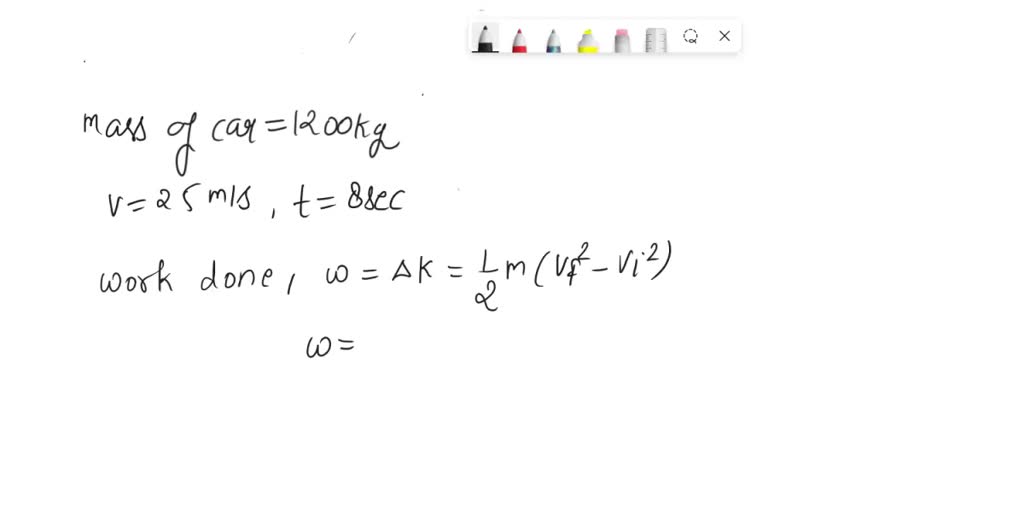 mass of car = 1200kg
v = 25 m/s, t = 8sec
work done, w = ΔK = 1/2 m (Vf² - Vi²)
w =